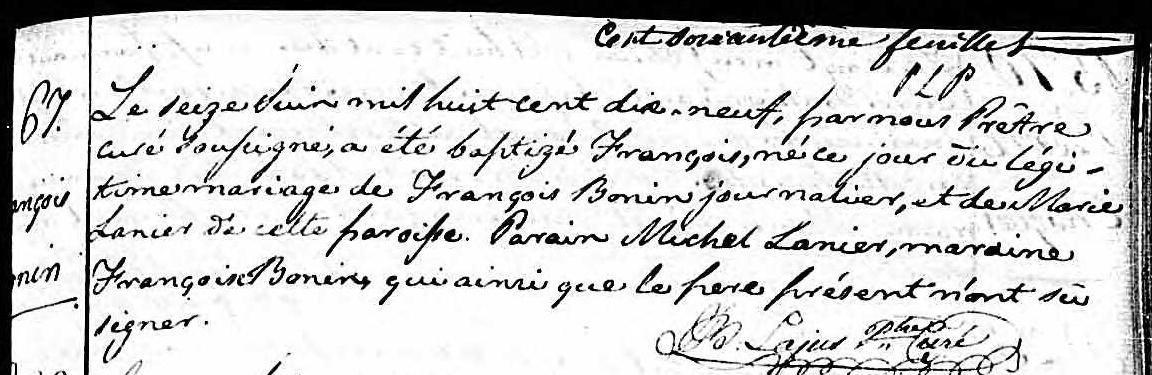 Cent soixantième feuillet
PLP
67.
ançois
onin
Le seize Juin mil huit cent dix-neuf, par nous Prêtre
curé soussigné, a été baptizé François, né ce jour du légi-
time mariage de François Bonin journalier, et de Marie
Lanier de cette paroisse. Parain Michel Lanier, maraine
Françoise Bonin, qui ainsi que le pere présent n'ont su
signer.
Lajus Ptre Curé